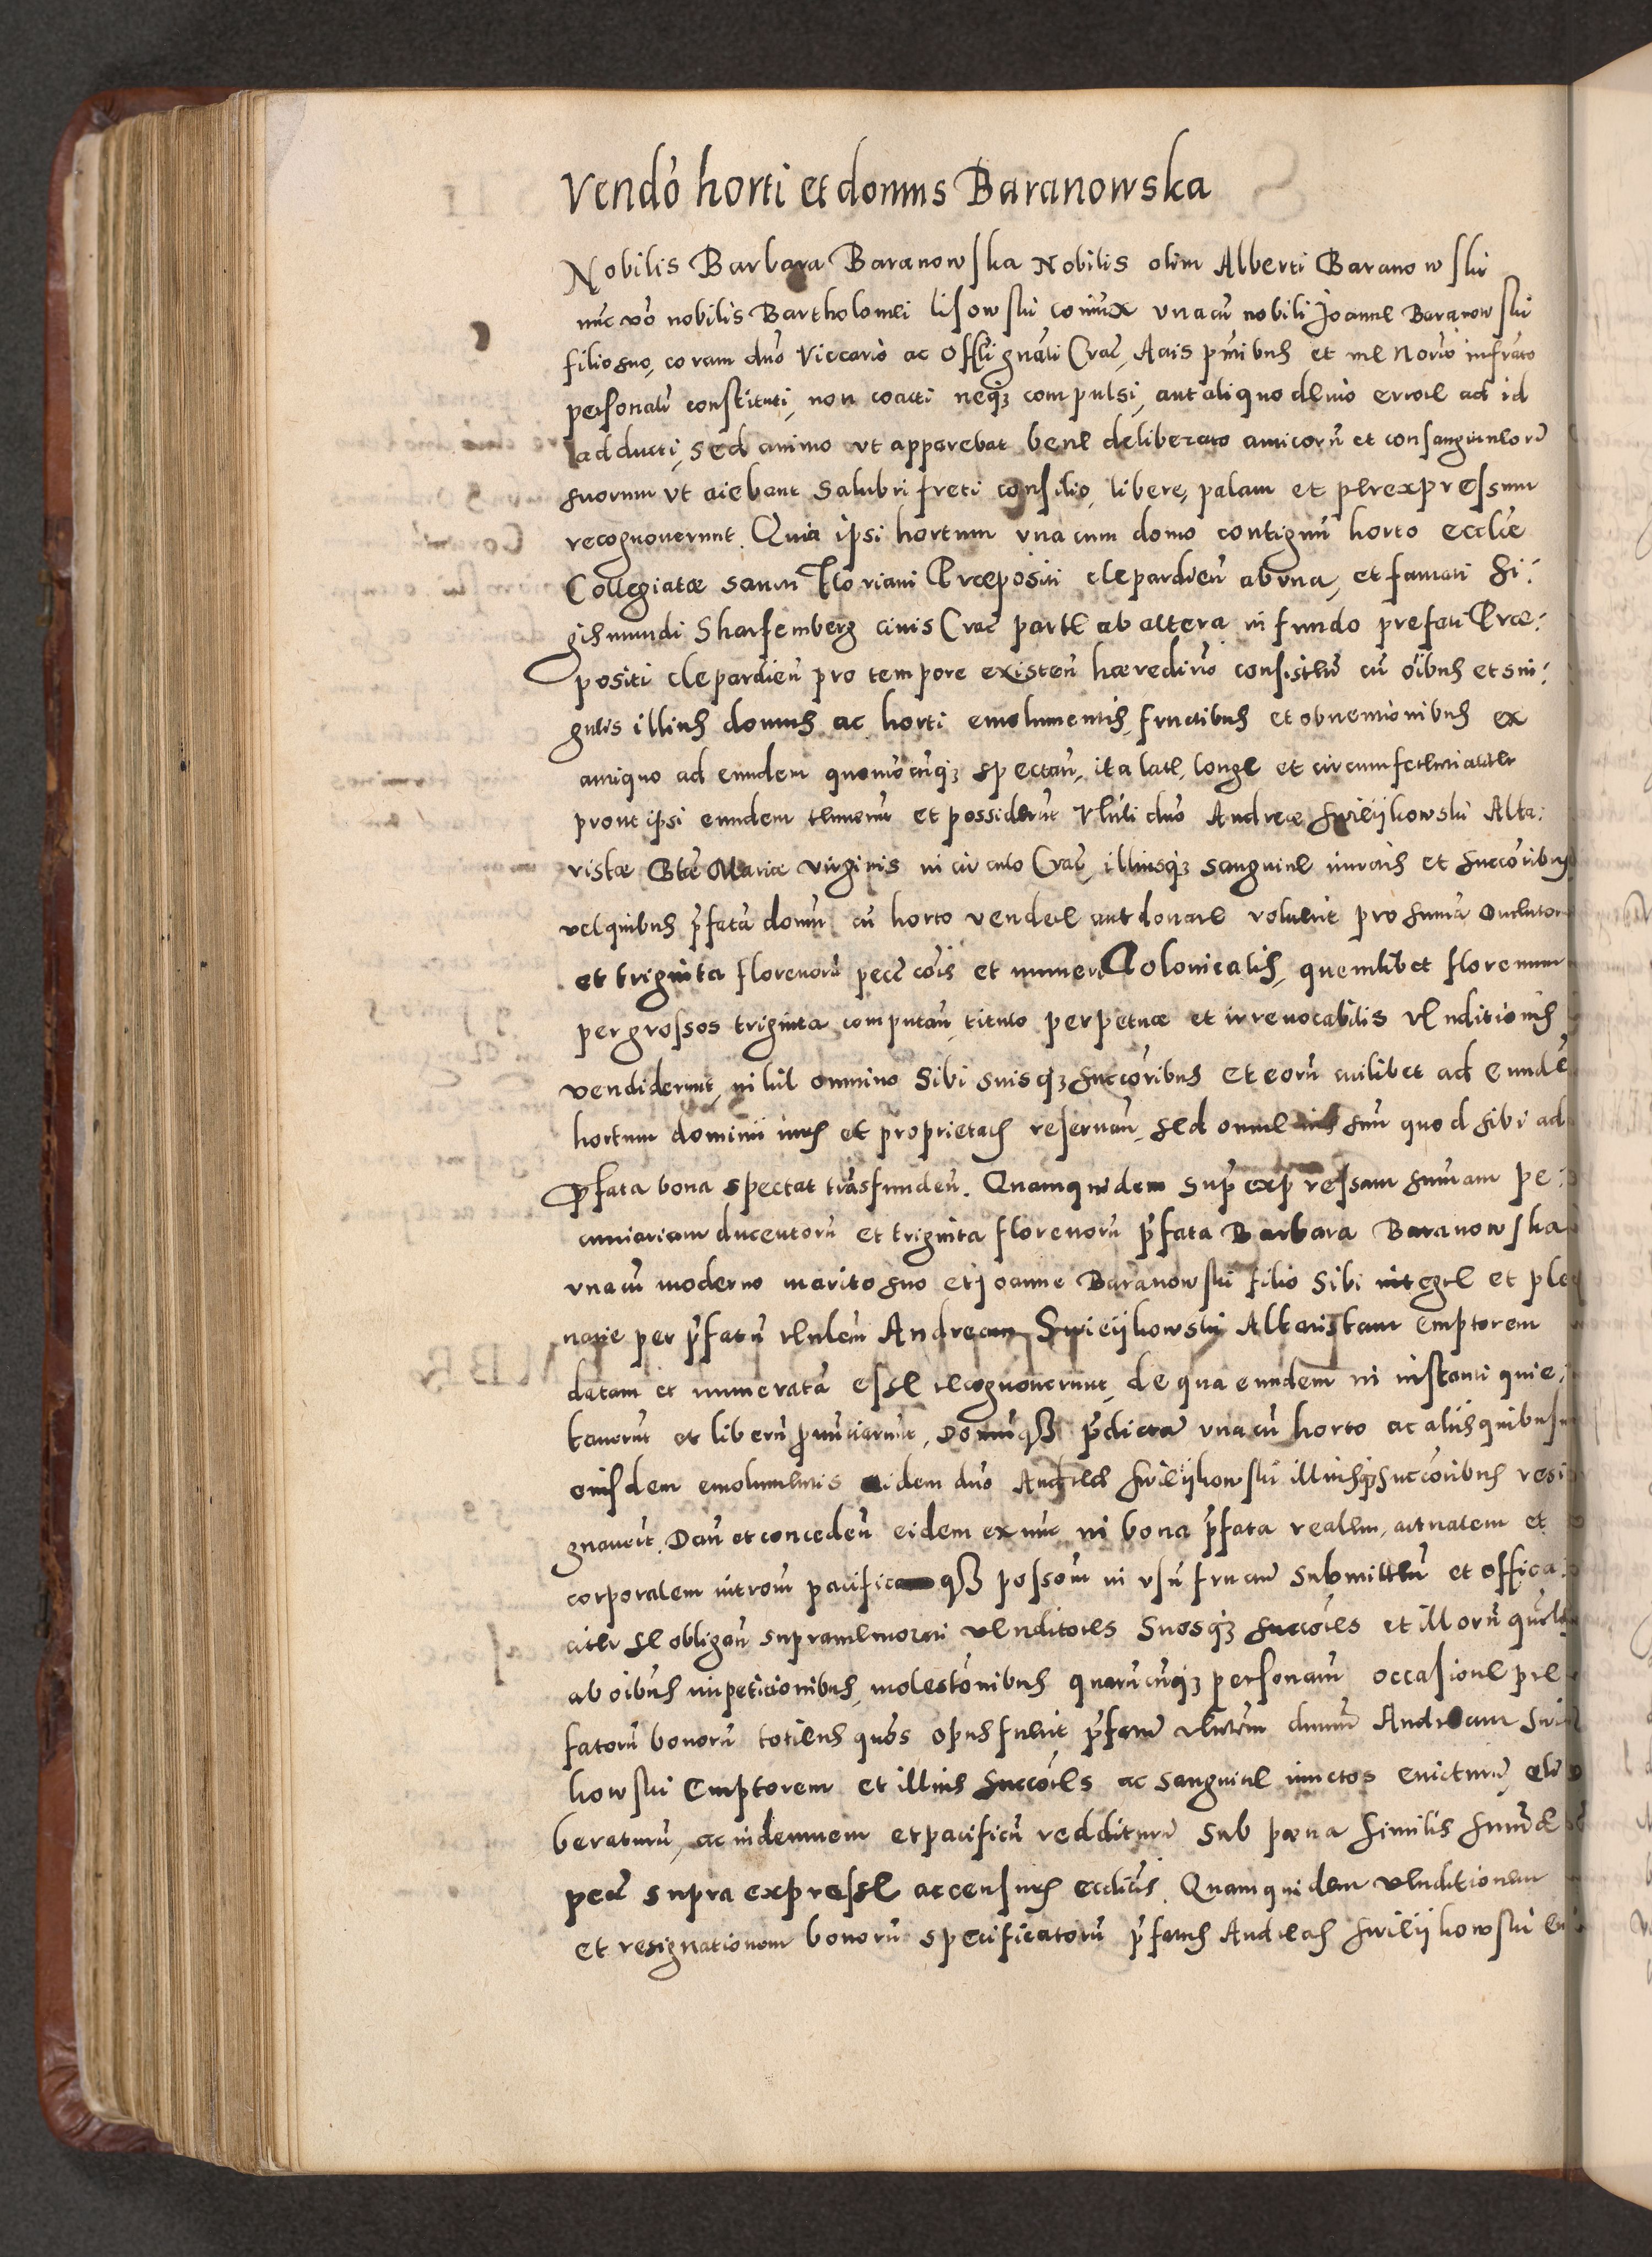 Vendõ horti et domus Baranowska
Nobilis Barbara Baranowska Nobilis olim Alberti Baranowski
nũc võ nobilis Bartholomei lisowski coniux vnacũ nobili Joanne Baranowski
filio suo, coram dño Viccario ac Offli gñali Crac̃, Actis p̃ntibus et me Norio infrãto
personalr̃ constituti, non coacti neq3 compulsi, aut aliquo deuio errore ad id
adducti, sed animo vt apparebat bene deliberato amicorũ et consanguineorũ
suorum vt aiebant salubri freti consilio, libere, palam et per expressum
recognouerunt. Quia ipsi hortum vna cum domo contiguũ horto ecclĩe
Collegiatæ sancti Floriani Præpositi clepardien̄ ab vna, et famati Si:
gismundi Sharfemberg ciuis Crac̃ parte ab altera in fundo prefati Præ:
positi clepardien̄ pro tempore existen̄ hæredirio consisten̄ cũ oĩbus et sin:
gulis illius domus ac horti emolumentis, fructibus et obuentionibus ex
antiquo ad eundem quomocũq3 spectan̄, ita late, longe et circumferentialiter
prout ipsi eundem tenuerũt et possiderũt Vñli dño Andreæ Swieijkowski Alta:
ristæ Btẽ Mariæ Virginis in circulo Crac̃, illiusq3 sanguine iunctis et succõribus
vel quibus p̃fatã domũ cũ horto vendere aut donare voluerit pro suma Ducentor
et triginta florenorũ pec̃ cõis et numeri Polonicalis, quemlibet florenum
per grossos triginta computan̄, titulo perpetuæ et irreuocabilis venditionis
vendiderunt, nihil omnino Sibi suisq3 succõribus et eorũ cuilibet ad eundẽ
hortum dominii iuris et proprietatis reseruan̄, sed omne ius suũ quod sibi ad
p̃fata bona spectat trãsfunden̄. Quamquidem sup̃ expressam sumam pe:
cuniariam ducentorũ et triginta florenorũ p̃fata Barbara Baranowska
vnacũ moderno marito suo et Joanne Baranowski filio Sibi integre et ple
narie per p̃fatũ vñlem Andream Swieijkowski Altaristam Emptorem
datam et numeratã esse recognouerunt, de qua eundem in instanti quie:
tauerũt et liberũ p̃nũciarunt, Domũqß p̃dictã vnacũ horto ac aliis quibus
eiusdem emolumentis eidem dño Andreæ Swieijkowski illiusq3 succõribus resi
gnauerũt. Dan̄ et conceden̄ eidem ex nũc in bona p̃fata realem, actualem et
corporalem introm̃ pacificamqß possom̃ in vsũ fructũ Submitten̄ et effica
citer se obligan̄ supramemorati venditores Suosq3 succõres et illorũ quẽl
ab oĩbus impeticionibus, molestõnibus quarũcũq3 personarũ occasione pre
fatorũ bonorũ totiens quõs opus fuerit p̃fatũ vñlem dnum̃ Andream Swi
howski Emptorem et illius Succões ac sanguine iunctos euicturũ, eli
beraturũ, ac indemnem et pacificũ redditurũ Sub pœna similis sum̃æ
pec̃ supra expresse ac censuris ecclicis. Quamquidem venditionem
et resignationem bonorũ specificatorũ p̃fatus Andreas Swieijkowski